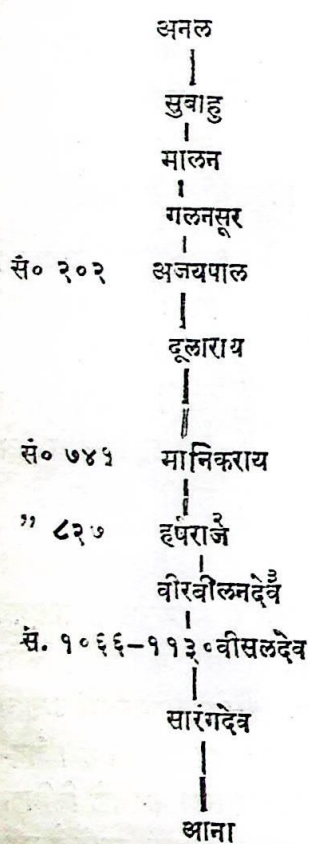 अनल
सुबाहु
मालन
गलनसूर
सं० २०२ अजयपाल
दूलाराय
सं० ७४५ मानिकराय
” ८२७ हर्षराज२
वीरबीलनदेव३
सं. १०६६-११३० वीसलदेव
सारंगदेव
आना